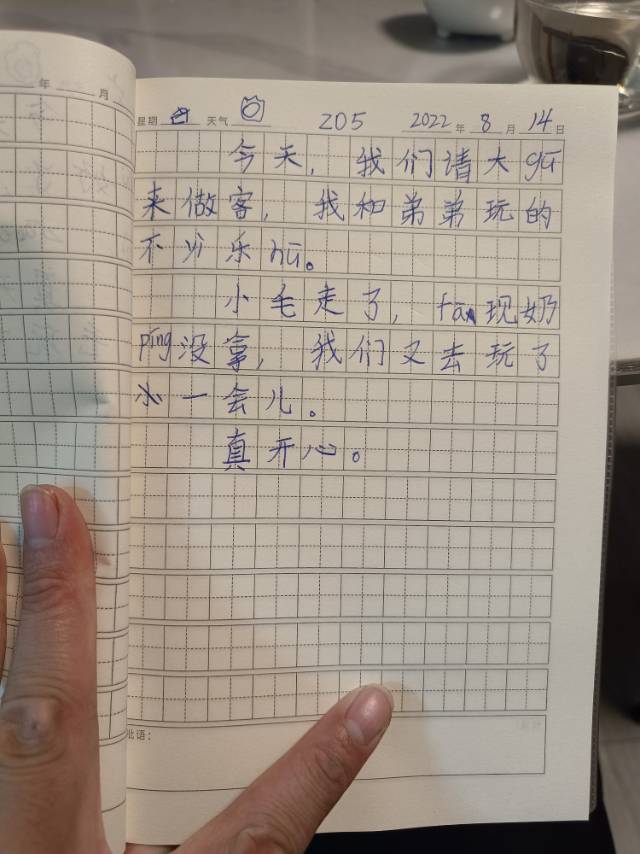 年 月
星期 日 天气 205 2022 年 8 月 14 日
今天，我们请大gū
来做客，我和弟弟玩的
不亦乐hū。
小毛走了，fān现奶
píng没拿，我们又去玩了
一会儿。
真开心。
批语：